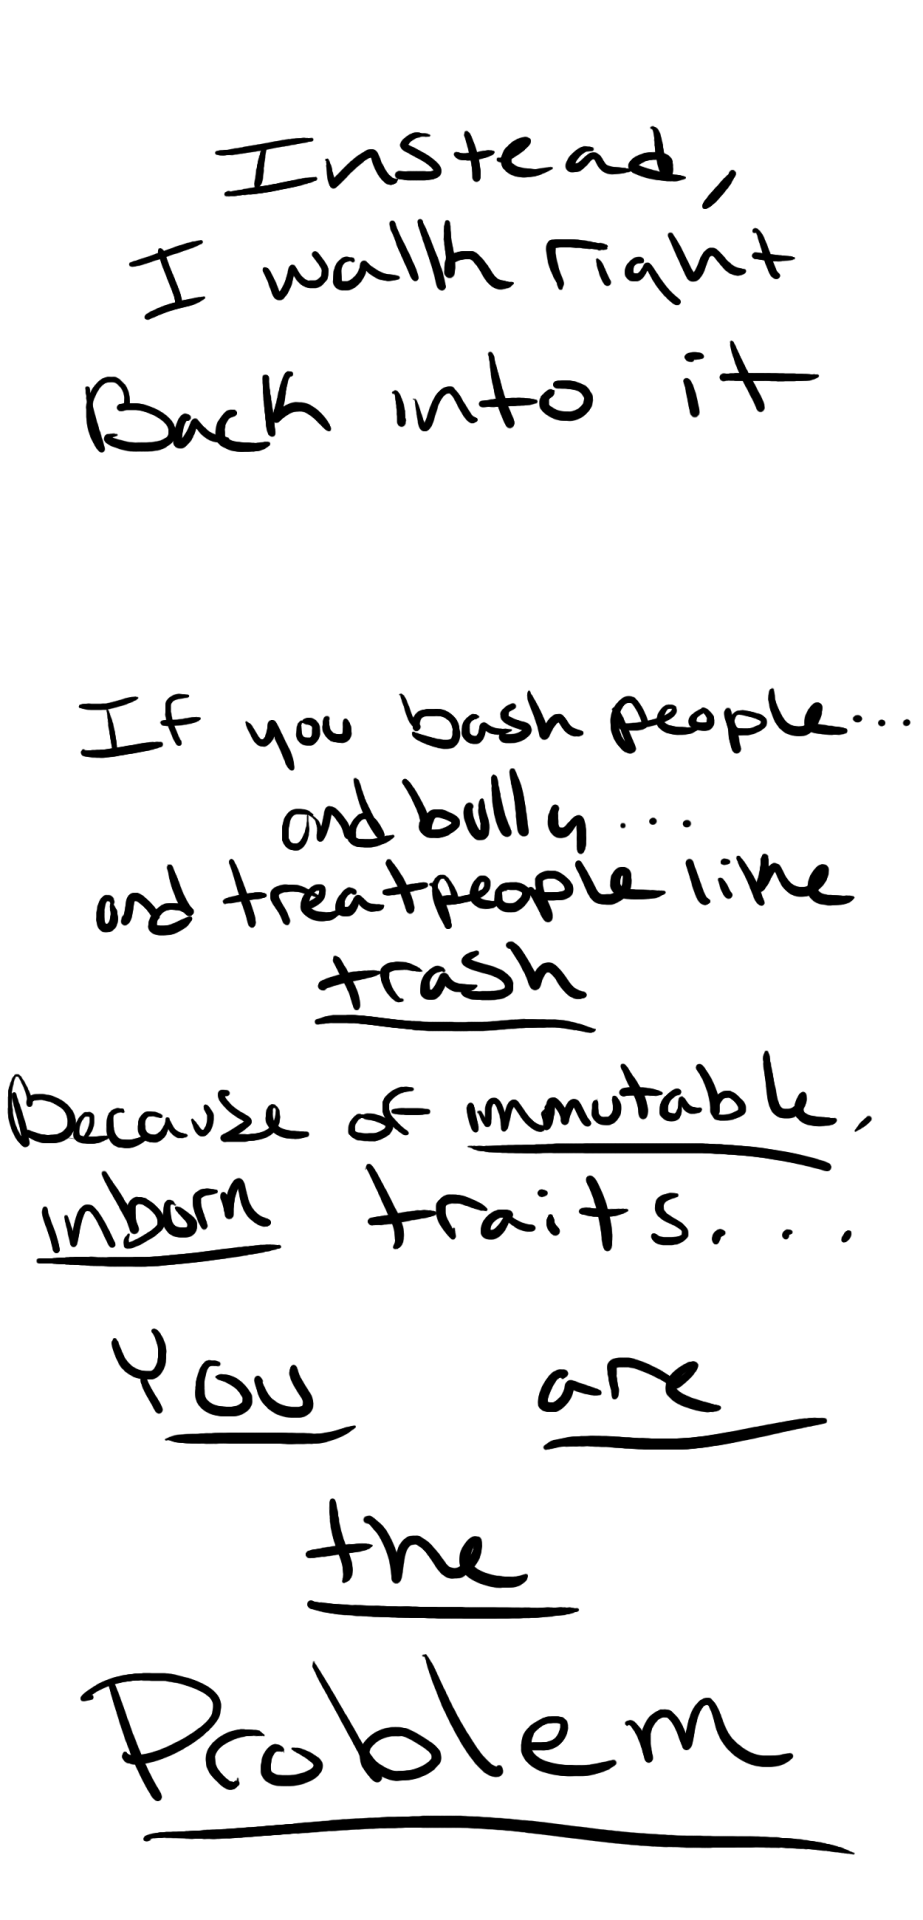 Instead,
I walk right
Back into it
If you bash people...
and bully...
and treat people like
trash
Because of immutable,
inborn traits...
You are
the
Problem